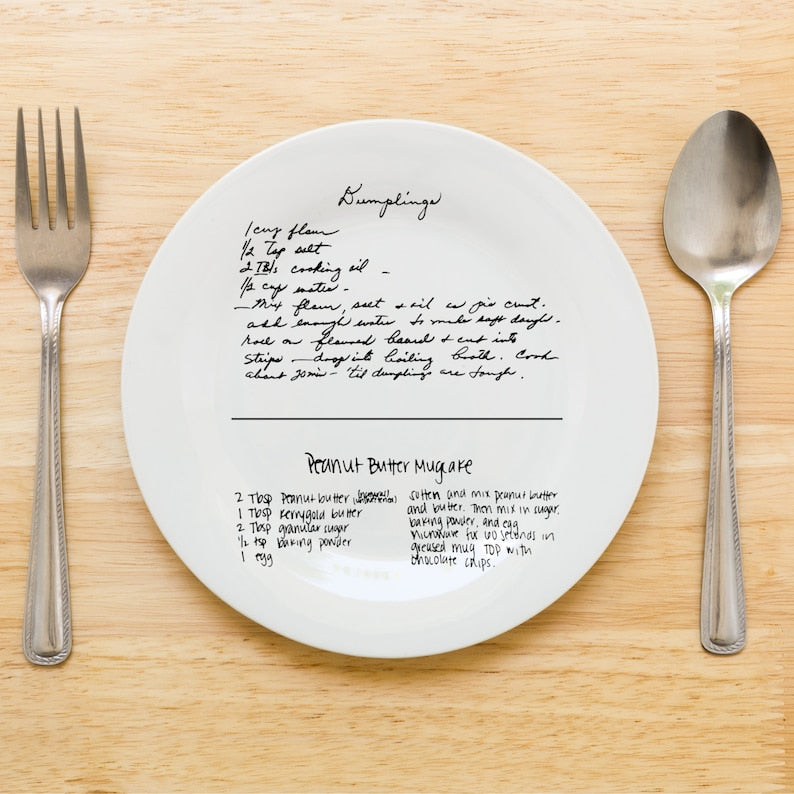 Dumplings
1 cup flour
1/2 Tsp salt
2 TBls cooking oil -
1/2 cup water -
- Mix flour, salt & oil as pie crust.
add enough water to make soft dough.
roll on floured board & cut into
strips - drop into boiling broth. Cook
about 20 min - 'til dumplings are tough.
Peanut Butter Mugcake
2 Tbsp Peanut butter (natural/
1 Tbsp Kerrygold butter
2 Tbsp granular sugar
1/2 tsp baking powder
1 egg
Soften and mix peanut butter
and butter. Then mix in sugar,
baking powder, and egg
Microwave for 60 seconds in
greased mug TOP with
chocolate chips.